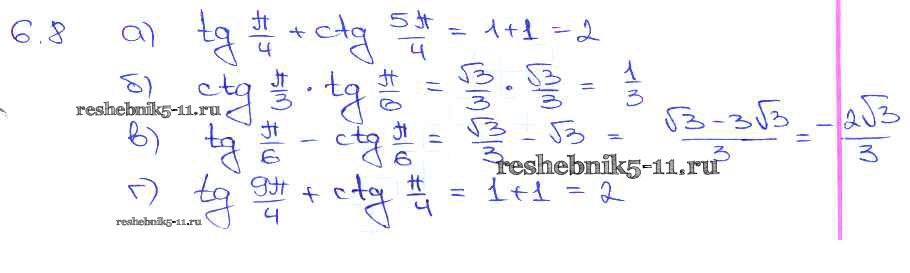 6.8 а) tg π/4 + ctg 5π/4 = 1+1 = 2
б) ctg π/3 · tg π/6 = √3/3 · √3/3 = 1/3
reshebnik5-11.ru
в) tg π/6 - ctg π/6 = √3/3 - √3 = √3-3√3/3 = -2√3/3
reshebnik5-11.ru
г) tg 9π/4 + ctg π/4 = 1+1 = 2
reshebnik5-11.ru